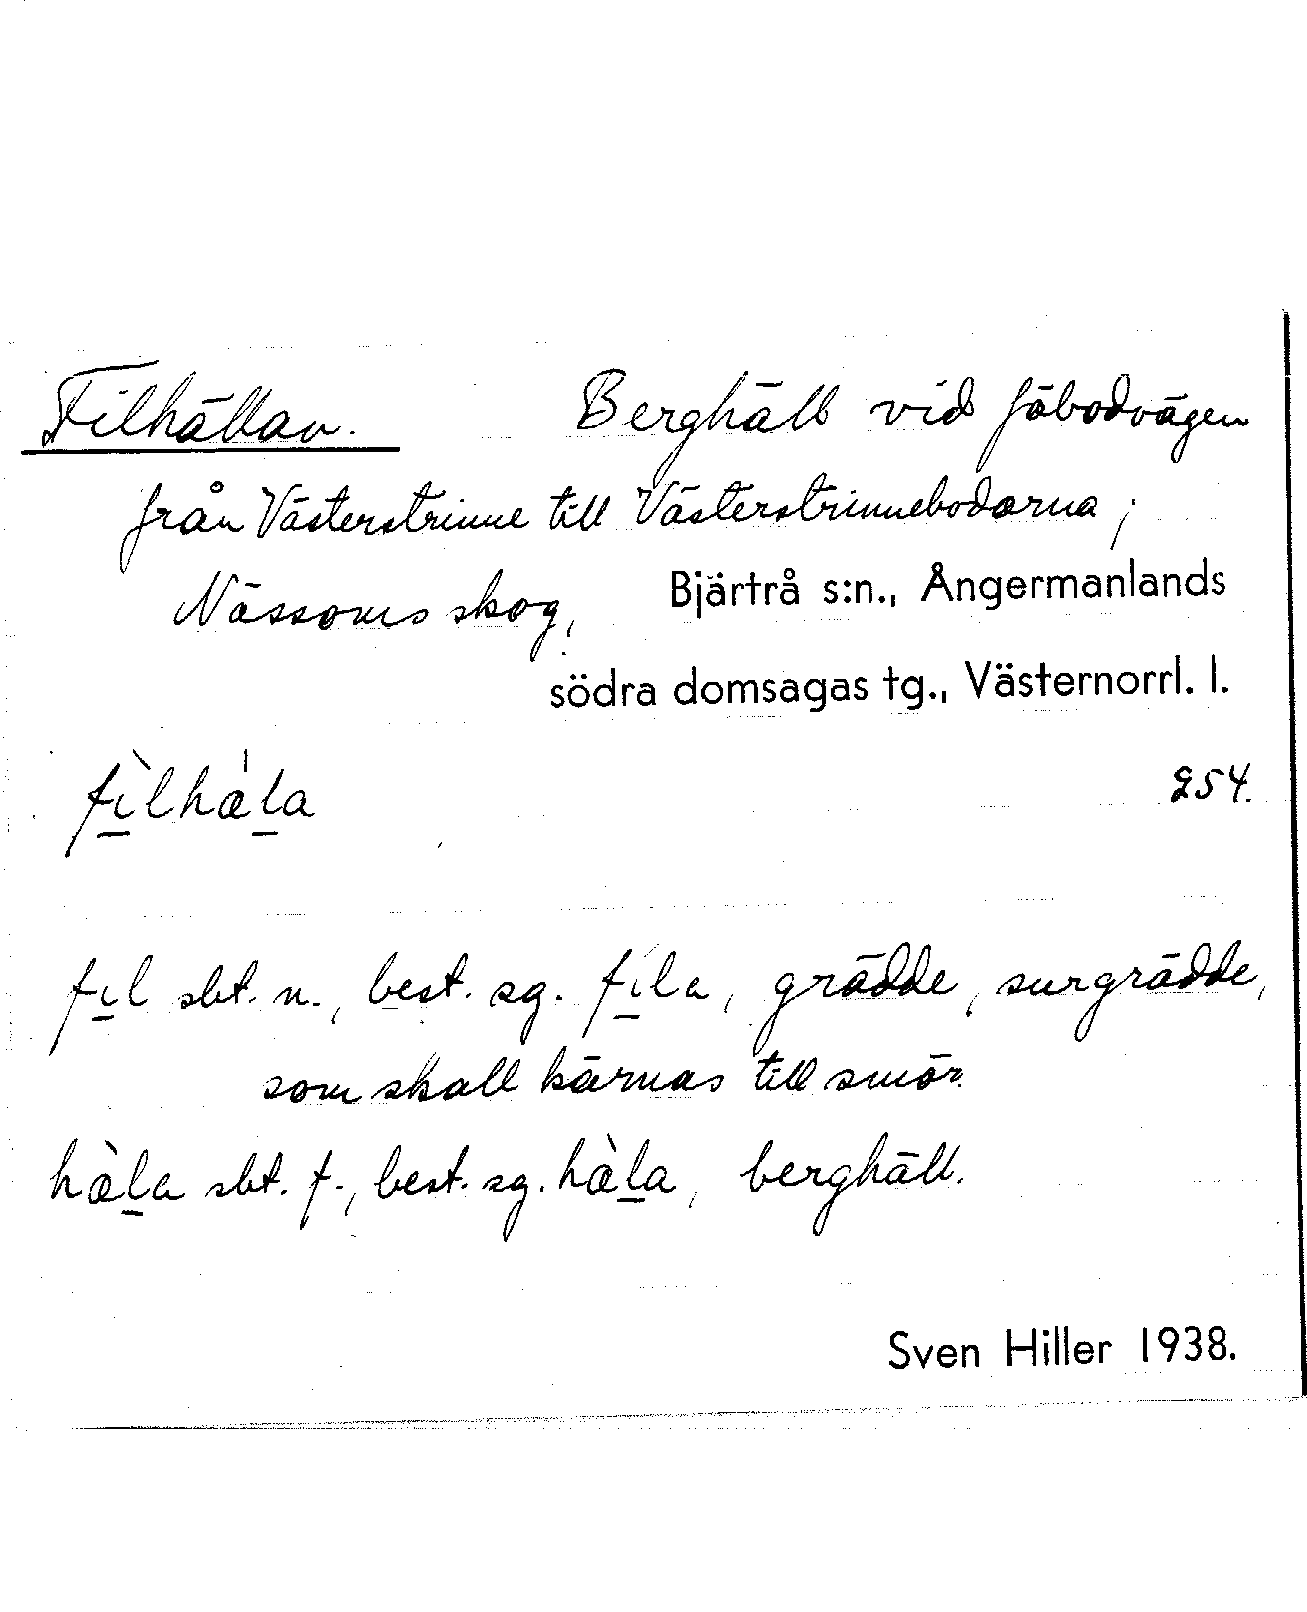 Filhällan. Berghäll vid fäbodvägen
från Västerstrinne till Västerstrinnebodarna;
Nässoms skog, Bjärtrå s:n., Ångermanlands
södra domsagas tg., Västernorrl. l.
fı̲̀lhæ̍l̲a 254.
fı̲l sbt. n., best. sg. fı̲́la, grädde, surgrädde,
som skall kärnas till smör.
hæ̀l̲a sbt. f., best. sg. hæ̀l̲a, berghäll.
Sven Hiller 1938.